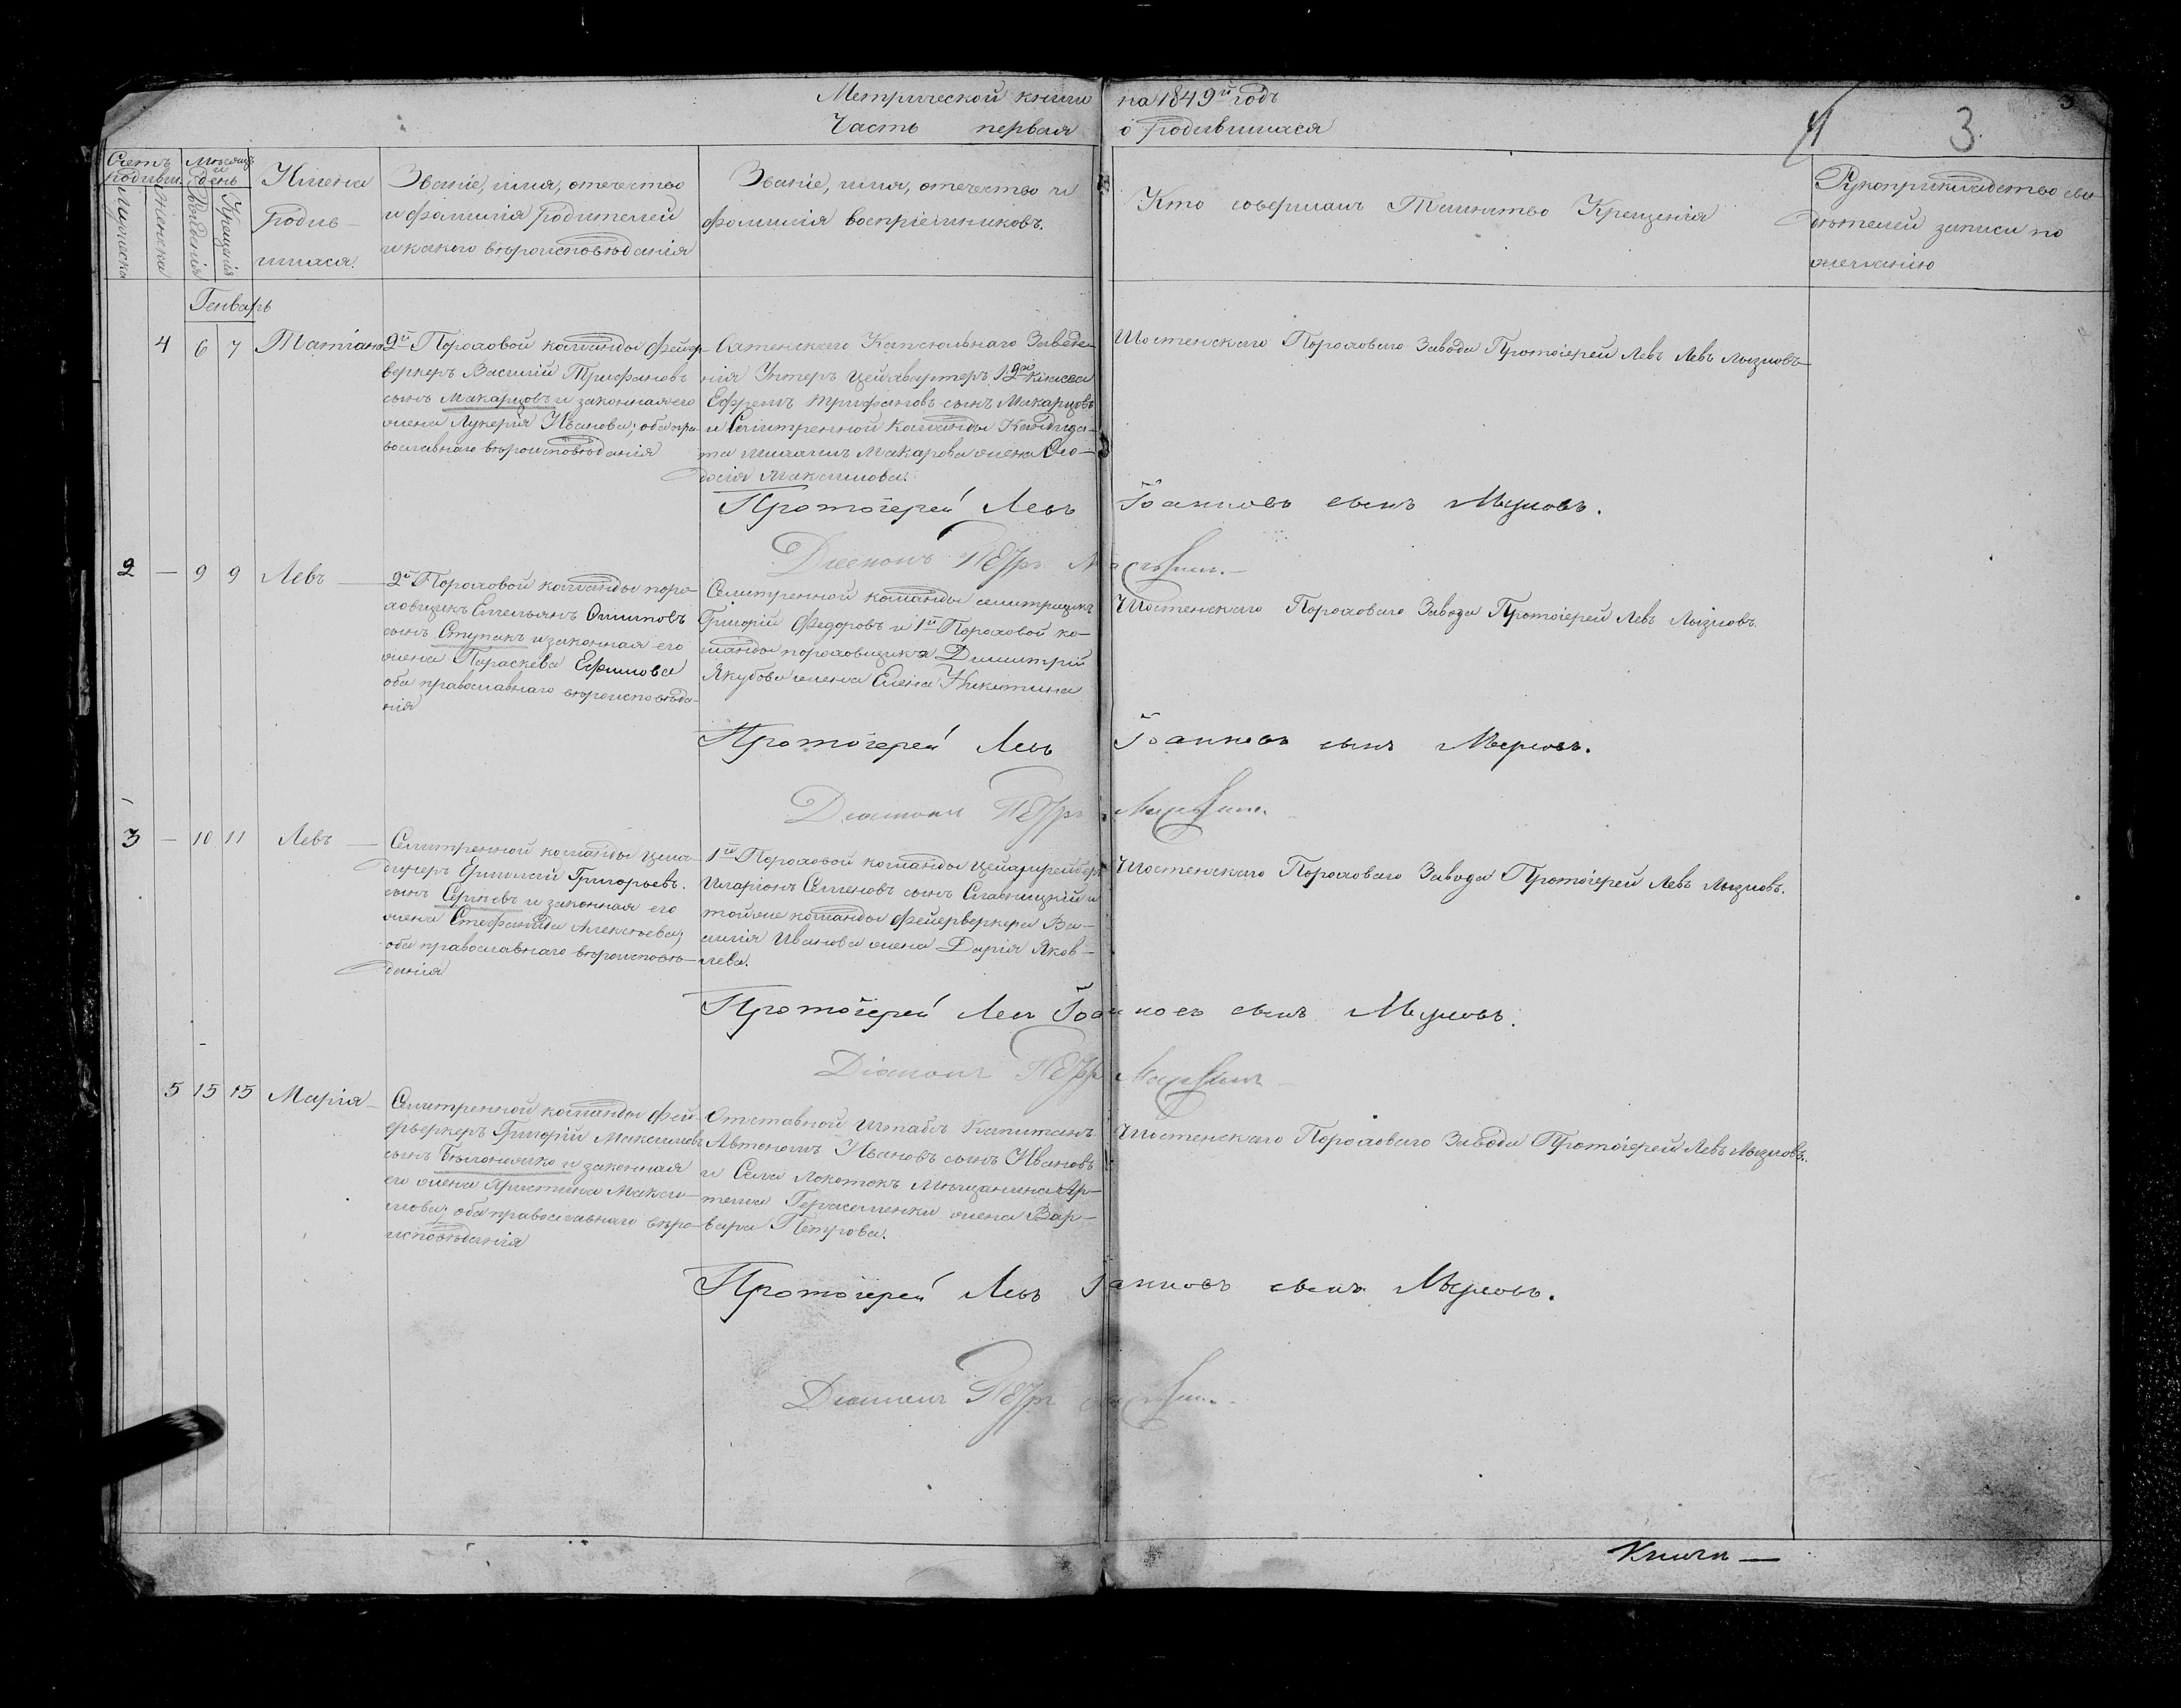 Метрической книги на 1849й годъ
Часть первая о родившихся
3
3
Счетъ родивш.
Мужеска
Женска
Мѣсяцъ и день
Рожденія
Крещенія
Имена
родив-
шихся.
Званіе, имя, отечество
и фамилія родителей
и какого вѣроисповѣданія
Званіе, имя, отечество и
фамилія воспріемниковъ.
Кто совершалъ Таинство Крещенія
Рукоприкладство сви-
дѣтелей записи по
желанію
Генварь
4 6 7 Татіана
2й Пороховой команды фейер-
веркеръ Василій Трифановъ
сынъ Макарцовъ и законная его
жена Лукерія Иванова; оба пра-
вославнаго вѣроисповѣданія
Охтенскаго Капсюльнаго Заведе-
нія Унтеръ цейхвартеръ 12го класса
Ефремъ Трифановъ сынъ Макарцовъ
и Селитренной команды Кандида-
та Макарова жена Ѳео-
досія Максимова.
Шостенскаго Пороховаго Завода Протоіерей Левъ Левъ Лызловъ
Протоіерей Левъ Іоанновъ сынъ Лызловъ.
Діаконъ Петръ
2 — 9 9 Левъ —
2й Пороховой команды поро-
ховщикъ Емельянъ Осиповъ
сынъ Ступакъ и законная его
жена Параскева Ефимова
оба православнаго вѣроисповѣда-
нія
Селитренной команды селитрщикъ
Григорій Федоровъ и 1й Пороховой ко-
манды пороховщика Димитрій
Якубова жена Елена Никитина
Шостенскаго Пороховаго Завода Протоіерей Левъ Лызловъ.
Протоіерей Левъ Іоанновъ сынъ Лызловъ.
Діаконъ Петръ
3 — 10 11 Левъ —
Селитренной команды
Григорьевъ.
сынъ Серіковъ и законная его
жена Стефанида Алексѣева;
оба православнаго вѣроисповѣ-
данія
1й Пороховой команды
Иларіонъ Семеновъ сынъ Славницкій и
тойже команды фейерверкера Ва-
силія Иванова жена Дарія Яков-
лева.
Шостенскаго Пороховаго Завода Протоіерей Левъ Лызловъ.
Протоіерей Левъ Іоанновъ сынъ Лызловъ.
Діаконъ Петръ
5 15 15 Марія —
Селитренной команды фей-
ерверкеръ Григорій Максимовъ
сынъ и законная
его жена Христина Макси-
мова; оба православнаго вѣро-
исповѣданія
Отставной Штабсъ Капитанъ
Автономъ Ивановъ сынъ Ивановъ
и Села Локотокъ Мѣщанина Ар-
тема Герасименки жена Вар-
вара Петрова.
Шостенскаго Пороховаго Завода Протоіерей Левъ Лызловъ.
Протоіерей Левъ Іоанновъ сынъ Лызловъ.
Діаконъ Петръ
Книги —